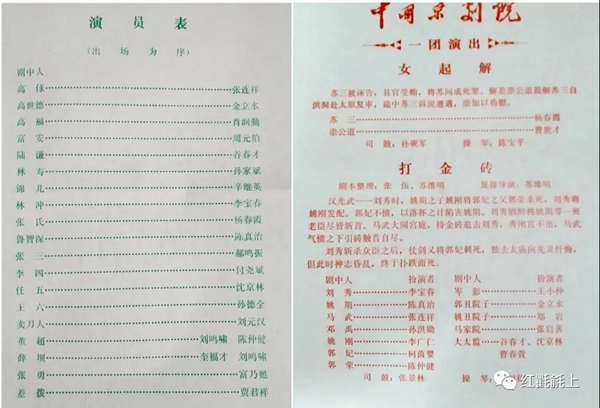 演员表
（出场为序）
剧中人
高俅 张连祥
高世德 金立水
高福 肖润勤
富安 周元伯
陆谦 谷春才
林寿 孙家斌
锦儿 辛继英
林冲 李宝春
张氏 杨春霞
鲁智深 陈真治
张三 郝鸣振
李四 付尧斌
任五 沈京林
王六 孙德全
卖刀人 刘元汉
董超 刘鸣啸 陈仲健
薛坝 奎福才 刘鸣啸
张勇 富乃甦
差拨 贾君祥
中国京剧院
一团演出
女起解
苏三被诬告，县官受贿，将苏问成死罪。解差崇公道提解苏三自
洪洞赴太原复审，途中苏三诉说遭遇，崇加以劝慰。
苏三 杨春霞
崇公道 曹世才
司鼓：孙砚军 操琴：陈宝平
打金砖
剧本整理：张伍、苏维明 复排导演：苏维明
汉光武——刘秀时，姚期之子姚刚将郭妃之父郭荣杀死，刘秀将
姚刚发配。郭妃不愤，以落杯之计陷害姚期。刘秀酒醉将姚期等一班
老臣尽皆斩首。马武大闹宫庭，持金砖追击刘秀，秀闭宫不出，马武
气愤之下引砖触首自尽。
刘秀斩杀众臣之后，仗剑又将郭妃刺死，独去太庙向先灵忏悔，
但此时神志昏乱，终于扑跌而死。
剧中人 扮演者 剧中人 扮演者
刘秀 李宝春 岑彭 王小仲
姚期 陈真治 郭丑院子 金立水
马武 张连祥 姚丑院子 郑岩
邓禹 孙洪勋 马家院 张启善
姚刚 李广仁 大太监 谷春才、沈京林
郭妃 柯茵婴 曹春萱
郭荣 陈仲健
司鼓：张景林 操琴：
红氍毹上